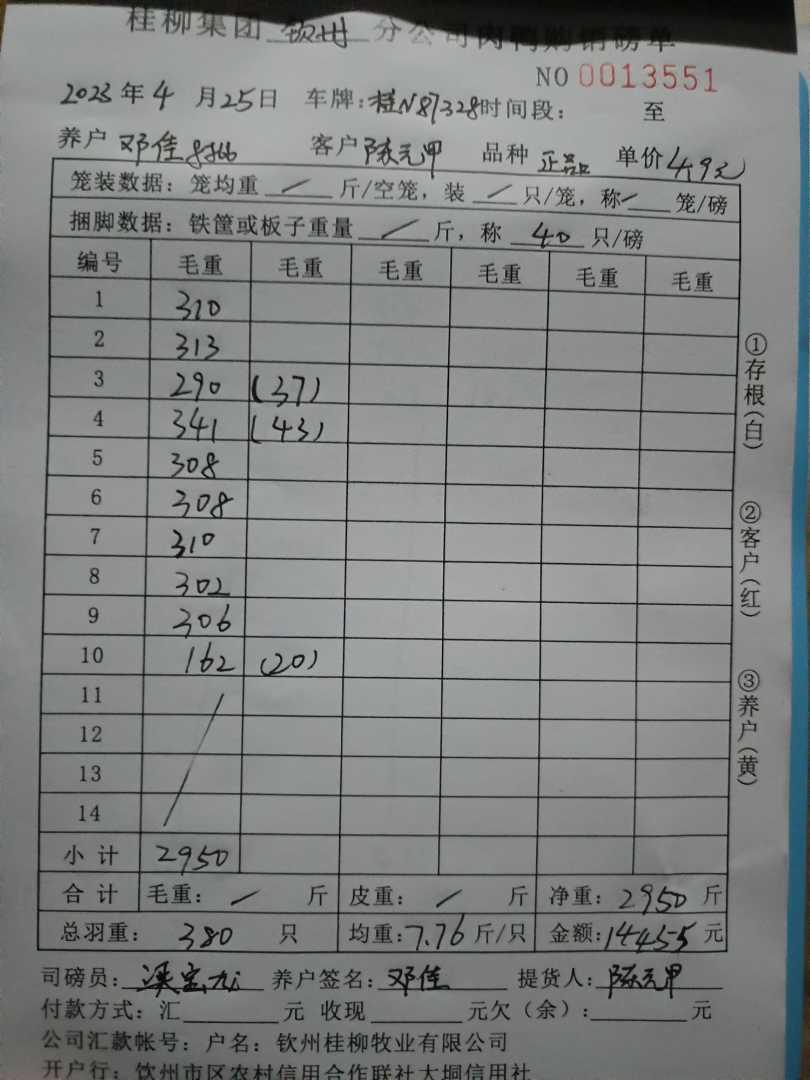 桂柳集团 钦州 分公司肉鸭购销磅单
NO 0013551
2023年4月25日 车牌:桂N87328时间段: 至
养户 邓佳 客户 陈元甲 品种 正品 单价 4.9元
笼装数据:笼均重 / 斤/空笼,装 / 只/笼,称 / 笼/磅
捆脚数据:铁筐或板子重量 / 斤,称 40 只/磅
编号 毛重 毛重 毛重 毛重 毛重 毛重
1 310
2 313
3 290 (37)
4 341 (43)
5 308
6 308
7 310
8 302
9 306
10 162 (20)
11
12
13
14
小计 2950
合计 毛重: / 斤 皮重: / 斤 净重: 2950 斤
总羽重: 380 只 均重:7.76斤/只 金额:14455元
司磅员: 养户签名:邓佳 提货人:陈元甲
付款方式:汇 元 收现 元欠(余): 元
公司汇款帐号:户名:钦州桂柳牧业有限公司
开户行:钦州市区农村信用合作联社大垌信用社
①存根(白)
②客户(红)
③养户(黄)